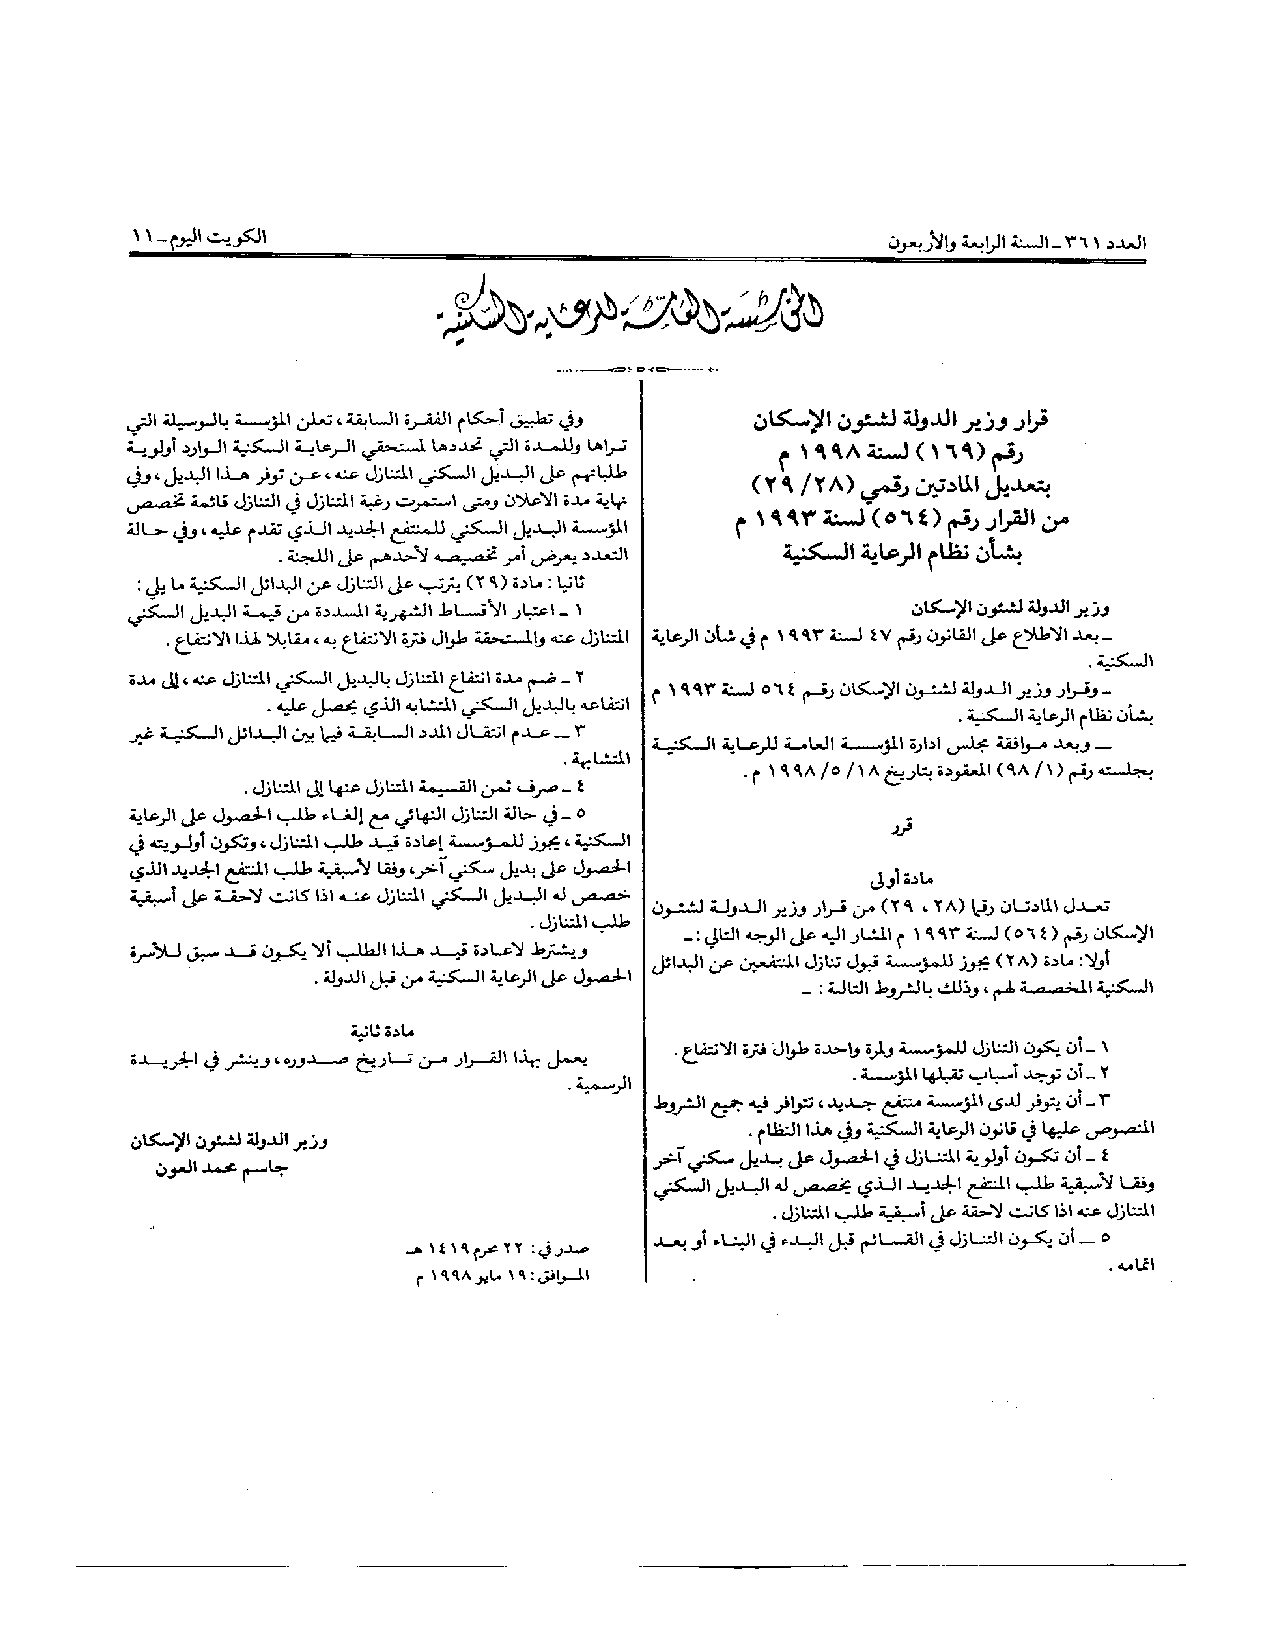 العدد ٣٦١ - السنة الرابعة والأربعون
الكويت اليوم - ١١
المؤسسة العامة للرعاية السكنية
قرار وزير الدولة لشئون الإسكان
رقم (١٦٩) لسنة ١٩٩٨ م
بتعديل المادتين رقمي (٢٨/ ٢٩)
من القرار رقم (٥٦٤) لسنة ١٩٩٣ م
بشأن نظام الرعاية السكنية
وزير الدولة لشئون الإسكان
- بعد الاطلاع على القانون رقم ٤٧ لسنة ١٩٩٣ م في شأن الرعاية
السكنية .
- وقرار وزير الدولة لشئون الإسكان رقم ٥٦٤ لسنة ١٩٩٣ م
بشأن نظام الرعاية السكنية .
- وبعد موافقة مجلس ادارة المؤسسة العامة للرعاية السكنية
بجلسته رقم (١/ ٩٨) المعقودة بتاريخ ١٨/ ٥/ ١٩٩٨ م .
قرر
مادة أولى
تعدل المادتان رقما (٢٨ ، ٢٩) من قرار وزير الدولة لشئون
الإسكان رقم (٥٦٤) لسنة ١٩٩٣ م المشار اليه على الوجه التالي :-
أولا: مادة (٢٨) يجوز للمؤسسة قبول تنازل المنتفعين عن البدائل
السكنية المخصصة لهم ، وذلك بالشروط التالة : -
١ - أن يكون التنازل للمؤسسة ولمرة واحدة طوال فترة الانتفاع .
٢ - أن توجد أسباب تقبلها المؤسسة .
٣ - أن يتوفر لدى المؤسسة منتفع جديد ، تتوافر فيه جميع الشروط
المنصوص عليها في قانون الرعاية السكنية وفي هذا النظام .
٤ - أن تكون أولوية المتنازل في الحصول على بديل سكني آخر
وفقا لأسبقية طلب المنتفع الجديد الذي يخصص له البديل السكني
المتنازل عنه اذا كانت لاحقة على أسبقية طلب المتنازل .
٥ - أن يكون التنازل في القسائم قبل البدء في البناء أو بعد
اتمامه .
وفي تطبيق أحكام الفقرة السابقة ، تعلن المؤسسة بالوسيلة التي
تراها وللمدة التي تحددها لمستحقي الرعاية السكنية الوارد أولوية
طلباتهم على البديل السكني المتنازل عنه ، عن توفر هذا البديل ، وفي
نهاية مدة الاعلان ومتى استمرت رغبة المتنازل في التنازل قائمة تخصص
المؤسسة البديل السكني للمنتفع الجديد الذي تقدم عليه ، وفي حالة
التعدد يعرض أمر تخصيصه لأحدهم على اللجنة .
ثانيا : مادة (٢٩) يترتب على التنازل عن البدائل السكنية ما يلي :
١ - اعتبار الأقساط الشهرية المسددة من قيمة البديل السكني
المتنازل عنه والمستحقة طوال فترة الانتفاع به ، مقابلا لهذا الانتفاع .
٢ - ضم مدة انتفاع المتنازل بالبديل السكني المتنازل عنه ، إلى مدة
انتفاعه بالبديل السكني المتشابه الذي يحصل عليه .
٣ - عدم انتقال المدد السابقة فيما بين البدائل السكنية غير
المتشابهة .
٤ - صرف ثمن القسيمة المتنازل عنها إلى المتنازل .
٥ - في حالة التنازل النهائي مع إلغاء طلب الحصول على الرعاية
السكنية ، يجوز للمؤسسة إعادة قيد طلب المتنازل ، وتكون أولويته في
الحصول على بديل سكني آخر ، وفقا لأسبقية طلب المنتفع الجديد الذي
خصص له البديل السكني المتنازل عنه اذا كانت لاحقة على أسبقية
طلب المتنازل .
ويشترط لاعادة قيد هذا الطلب ألا يكون قد سبق للأسرة
الحصول على الرعاية السكنية من قبل الدولة .
مادة ثانية
يعمل بهذا القرار من تاريخ صدوره ، وينشر في الجريدة
الرسمية .
وزير الدولة لشئون الإسكان
جاسم محمد العون
صدر في : ٢٢ محرم ١٤١٩ هـ
الموافق : ١٩ مايو ١٩٩٨ م